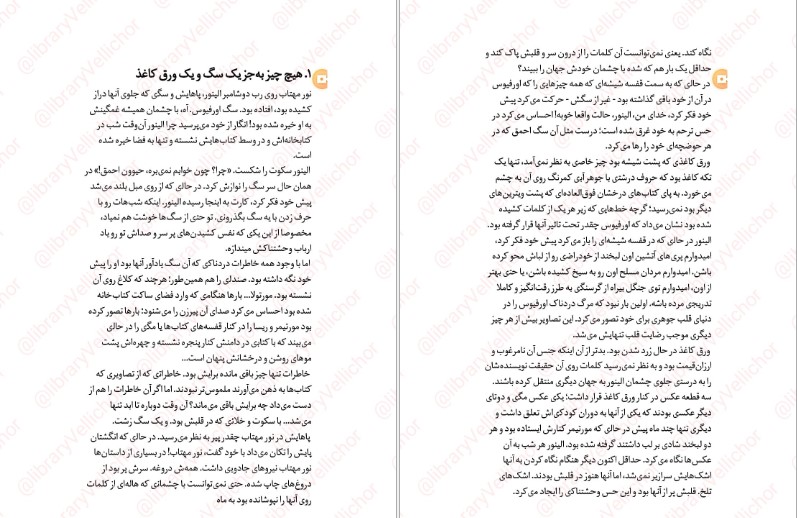 ۱. هیچ چیز به‌جز یک سگ و یک ورق کاغذ
نور مهتاب روی رب دوشامبر الینور، پاهایش و سگی که جلوی آنها دراز
کشیده بود، افتاده بود. سگ اورفیوس. آه، با چشمان همیشه غمگینش
به او خیره شده بود! انگار از خود می‌پرسید چرا الینور آن‌وقت شب در
کتابخانه‌اش و در وسط کتاب‌هایش نشسته و تنها به فضا خیره شده
است.
الینور سکوت را شکست. «چرا؟ چون خوابم نمی‌بره، حیوون احمق!» در
همان حال سر سگ را نوازش کرد. در حالی که از روی مبل بلند می‌شد
پیش خود فکر کرد، کارت به اینجا رسیده الینور. اینکه شب‌هات رو با
حرف زدن با یه سگ بگذرونی. تو حتی از سگ‌ها خوشت هم نمیاد،
مخصوصا از این یکی که نفس کشیدن‌های پر سر و صداش تو رو یاد
ارباب وحشتناکش میندازه.
اما با وجود همه خاطرات دردناکی که آن سگ یادآور آنها بود او را پیش
خود نگه داشته بود. صندلی را هم همین‌طور؛ هرچند که کلاغ روی آن
نشسته بود. مورتولا... بارها هنگامی که وارد فضای ساکت کتاب‌خانه
شده بود احساس می‌کرد صدای آن پیرزن را می‌شنود؛ بارها تصور کرده
بود مورتیمر و ریسا را در کنار قفسه‌های کتاب‌ها یا مگی را در حالی
می‌بیند که با کتابی در دامنش کنار پنجره نشسته و چهره‌اش پشت
موهای روشن و درخشانش پنهان است...
خاطرات تنها چیز باقی مانده برایش بود. خاطراتی که از تصاویری که
کتاب‌ها به ذهن می‌آورند ملموس‌تر نبودند. اما اگر آن خاطرات را هم از
دست می‌داد چه برایش باقی می‌ماند؟ آن وقت دوباره تا ابد تنها
می‌شد... با سکوت و خلائی که در قلبش بود. و یک سگ زشت.
پاهایش در نور مهتاب چقدر پیر به نظر می‌رسید. در حالی که انگشتان
پایش را تکان می‌داد با خود گفت، نور مهتاب! در بسیاری از داستان‌ها
نور مهتاب نیروهای جادویی داشت. همه‌ش دروغه. سرش پر بود از
دروغ‌های چاپ شده. حتی نمی‌توانست با چشمانی که هاله‌ای از کلمات
روی آنها را نپوشانده بود به ماه
نگاه کند. یعنی نمی‌توانست آن کلمات را از درون سر و قلبش پاک کند و
حداقل یک بار هم که شده با چشمان خودش جهان را ببیند؟
در حالی که به سمت قفسه شیشه‌ای که همه چیزهایی را که اورفیوس
در آن از خود باقی گذاشته بود - غیر از سگش - حرکت می‌کرد پیش
خود فکر کرد، خدای من، الینور، حالت واقعا خوبه! احساس می‌کرد در
حس ترحم به خود غرق شده است؛ درست مثل آن سگ احمق که در
هر حوضچه‌ای خود را رها می‌کرد.
ورق کاغذی که پشت شیشه بود چیز خاصی به نظر نمی‌آمد، تنها یک
تکه کاغذ بود که حروف درشتی با جوهر آبی کمرنگ روی آن به چشم
می‌خورد. به پای کتاب‌های درخشان فوق‌العاده‌ای که پشت ویترین‌های
دیگر بود نمی‌رسید؛ گرچه خط‌هایی که زیر هر یک از کلمات کشیده
شده بود نشان می‌داد که اورفیوس چقدر تحت تاثیر آنها قرار گرفته بود.
الینور در حالی که در قفسه شیشه‌ای را باز می‌کرد پیش خود فکر کرد،
امیدوارم پری‌های آتشین اون لبخند از خودراضی رو از لباش محو کرده
باشن. امیدوارم مردان مسلح اون رو به سیخ کشیده باشن، یا حتی بهتر
از اون، امیدوارم توی جنگل بیراه از گرسنگی به طرز رقت‌انگیز و کاملا
تدریجی مرده باشه. اولین بار نبود که مرگ دردناک اورفیوس را در
دنیای قلب جوهری برای خود تصور می‌کرد. این تصاویر بیش از هر چیز
دیگری موجب رضایت قلب تنهایش می‌شد.
ورق کاغذ در حال زرد شدن بود. بدتر از آن اینکه جنس آن نامرغوب و
ارزان‌قیمت بود و به نظر نمی‌رسید کلمات روی آن حقیقت نویسنده‌شان
را به درستی جلوی چشمان الینور به جهان دیگری منتقل کرده باشند.
سه قطعه عکس در کنار ورق کاغذ قرار داشت؛ یکی عکس مگی و دوتای
دیگر عکسی بودند که یکی از آنها به دوران کودکی‌اش تعلق داشت و
دیگری تنها چند ماه پیش در حالی که مورتیمر کنارش ایستاده بود و هر
دو لبخند شادی بر لب داشتند گرفته شده بود. الینور هر شب به آن
عکس‌ها نگاه می‌کرد. حداقل اکنون دیگر هنگام نگاه کردن به آنها
اشک‌هایش سرازیر نمی‌شد، اما آنها هنوز در قلبش بودند. اشک‌های
تلخ. قلبش پر از آنها بود و این حس وحشتناکی را ایجاد می‌کرد.
@libraryVellichor